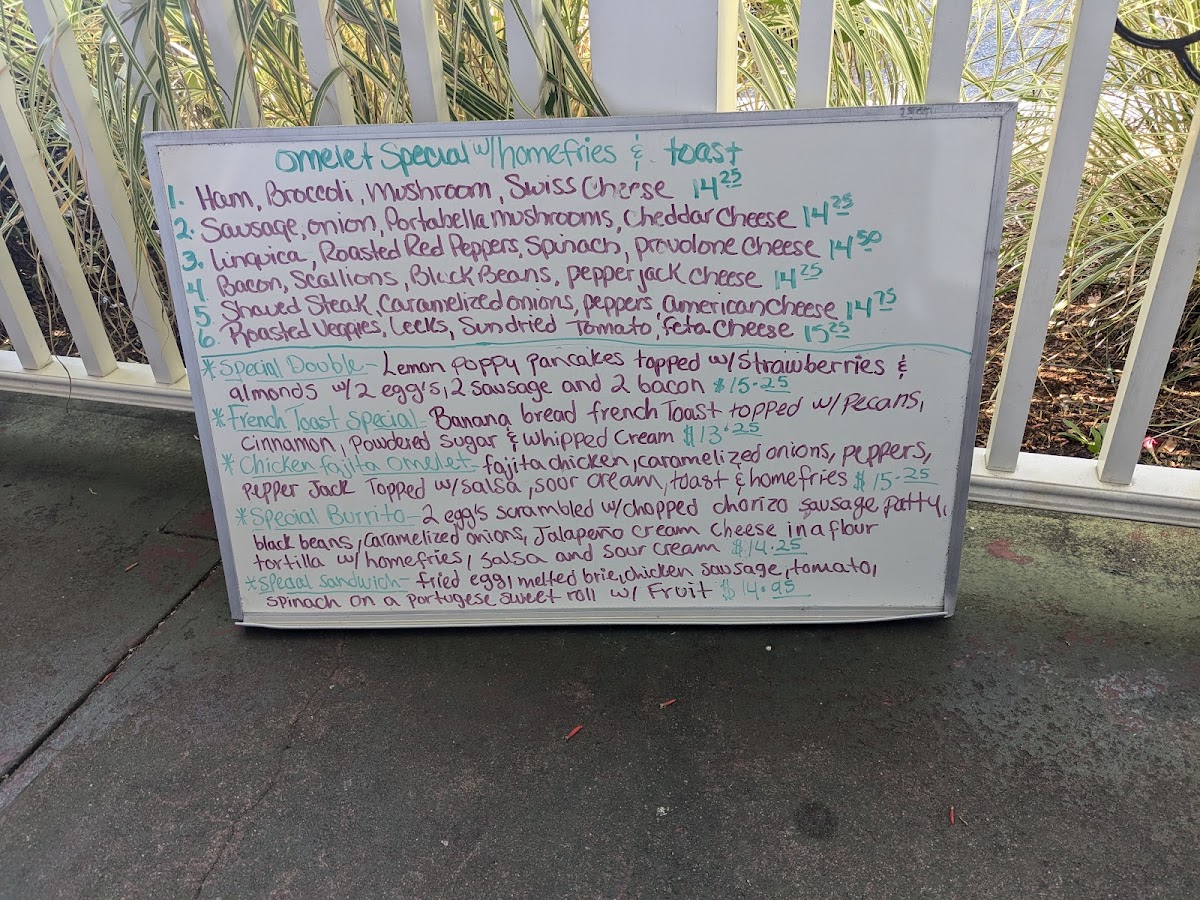 Omelet Special w/homefries & toast
1. Ham, Broccoli, Mushroom, Swiss Cheese 14 25
2. Sausage, onion, Portabella mushrooms, Cheddar Cheese 14 25
3. Linquica, Roasted Red Peppers, Spinach, provolone Cheese 14 50
4. Bacon, Scallions, Black Beans, pepper jack Cheese 14 25
5. Shaved Steak, Caramelized onions, peppers, american Cheese 14 75
6. Roasted Veggies, Leeks, Sundried Tomato, feta Cheese 15 25
*Special Double- Lemon Poppy Pancakes topped w/Strawberries &
almonds w/2 egg's, 2 sausage and 2 bacon $15.25
*French Toast Special- Banana bread french Toast topped w/Pecans,
Cinnamon, Powdered Sugar & Whipped Cream $13.25
*Chicken fajita omelet- fajita chicken, caramelized onions, peppers,
Pepper Jack Topped w/salsa, sour cream, toast & homefries $15.25
*Special Burrito- 2 egg's scrambled w/chopped chorizo sausage patty,
black beans, caramelized onions, Jalapeño cream cheese in a flour
tortilla w/homefries, salsa and sour cream $14.25
*Special Sandwich- fried egg, melted brie, chicken sausage, tomato,
spinach on a Portugese sweet roll w/ Fruit $14.95